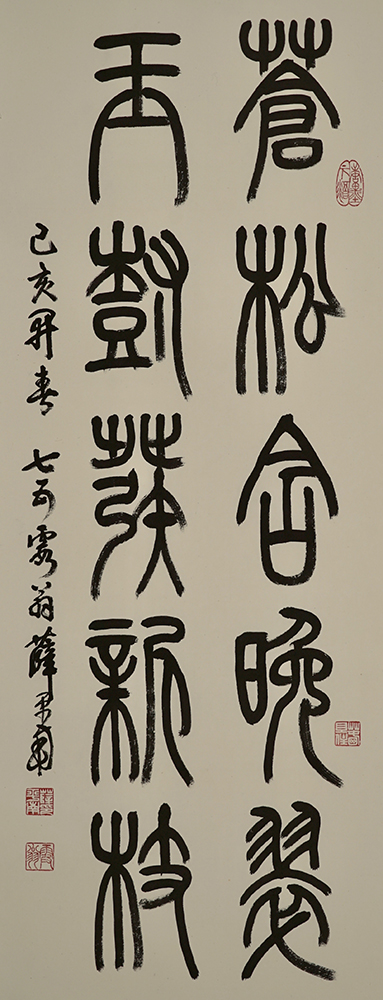 蒼松含晚翠
玉樹發新枝
己亥開春 七五霞翁薛平南